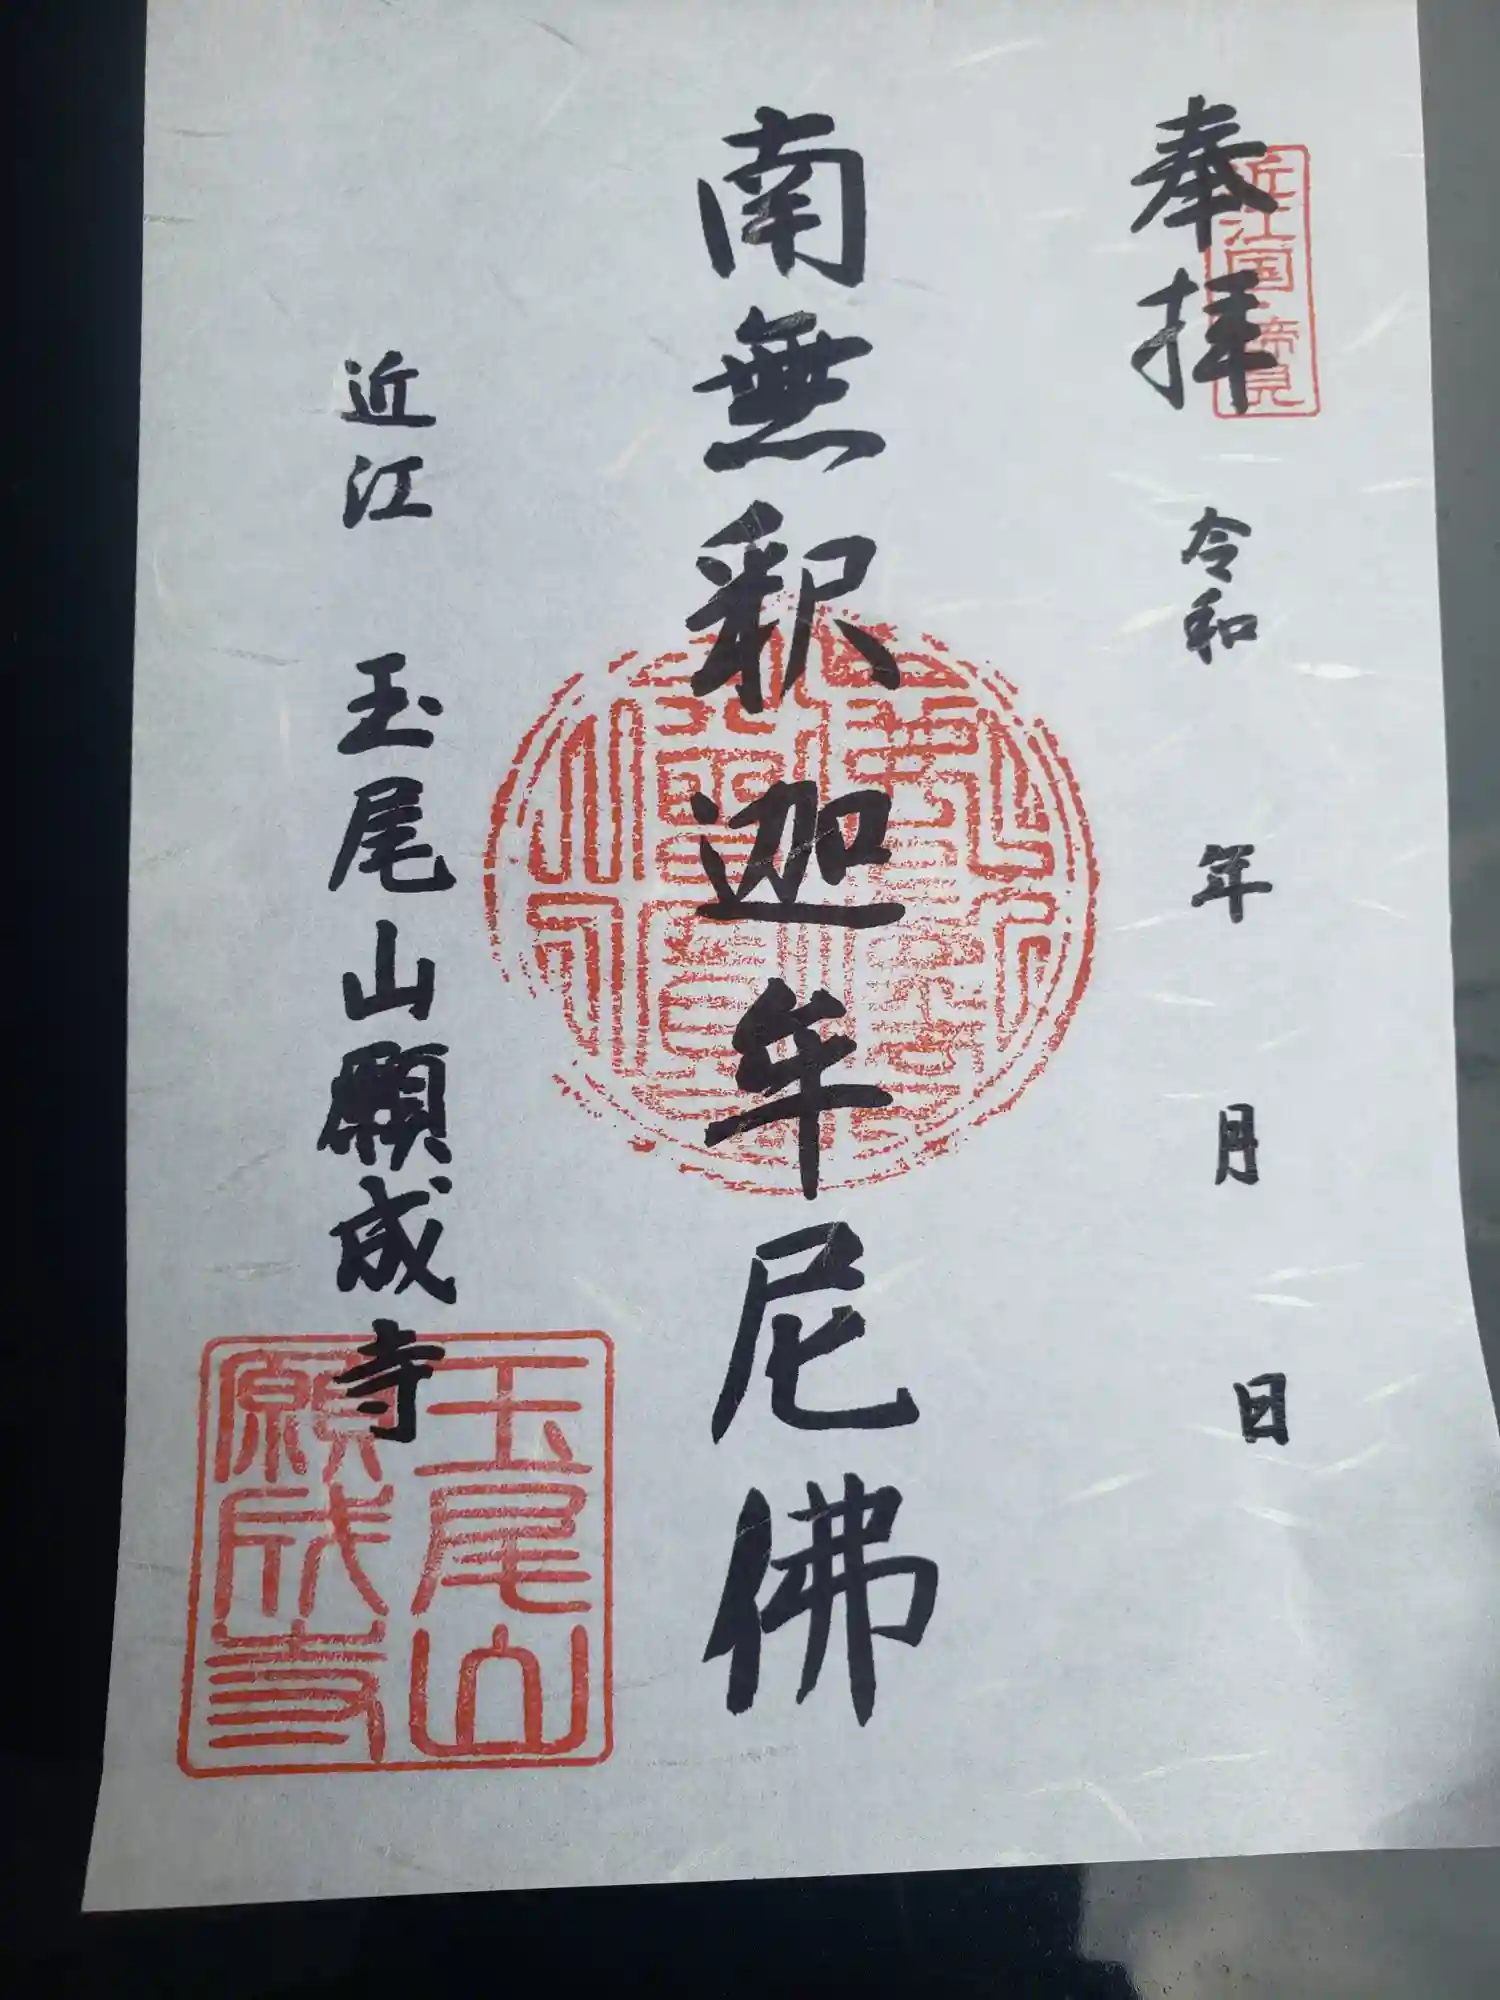 奉拝
令和 年 月 日
南無釈迦牟尼佛
近江 玉尾山願成寺
玉尾山
願成寺
近江国